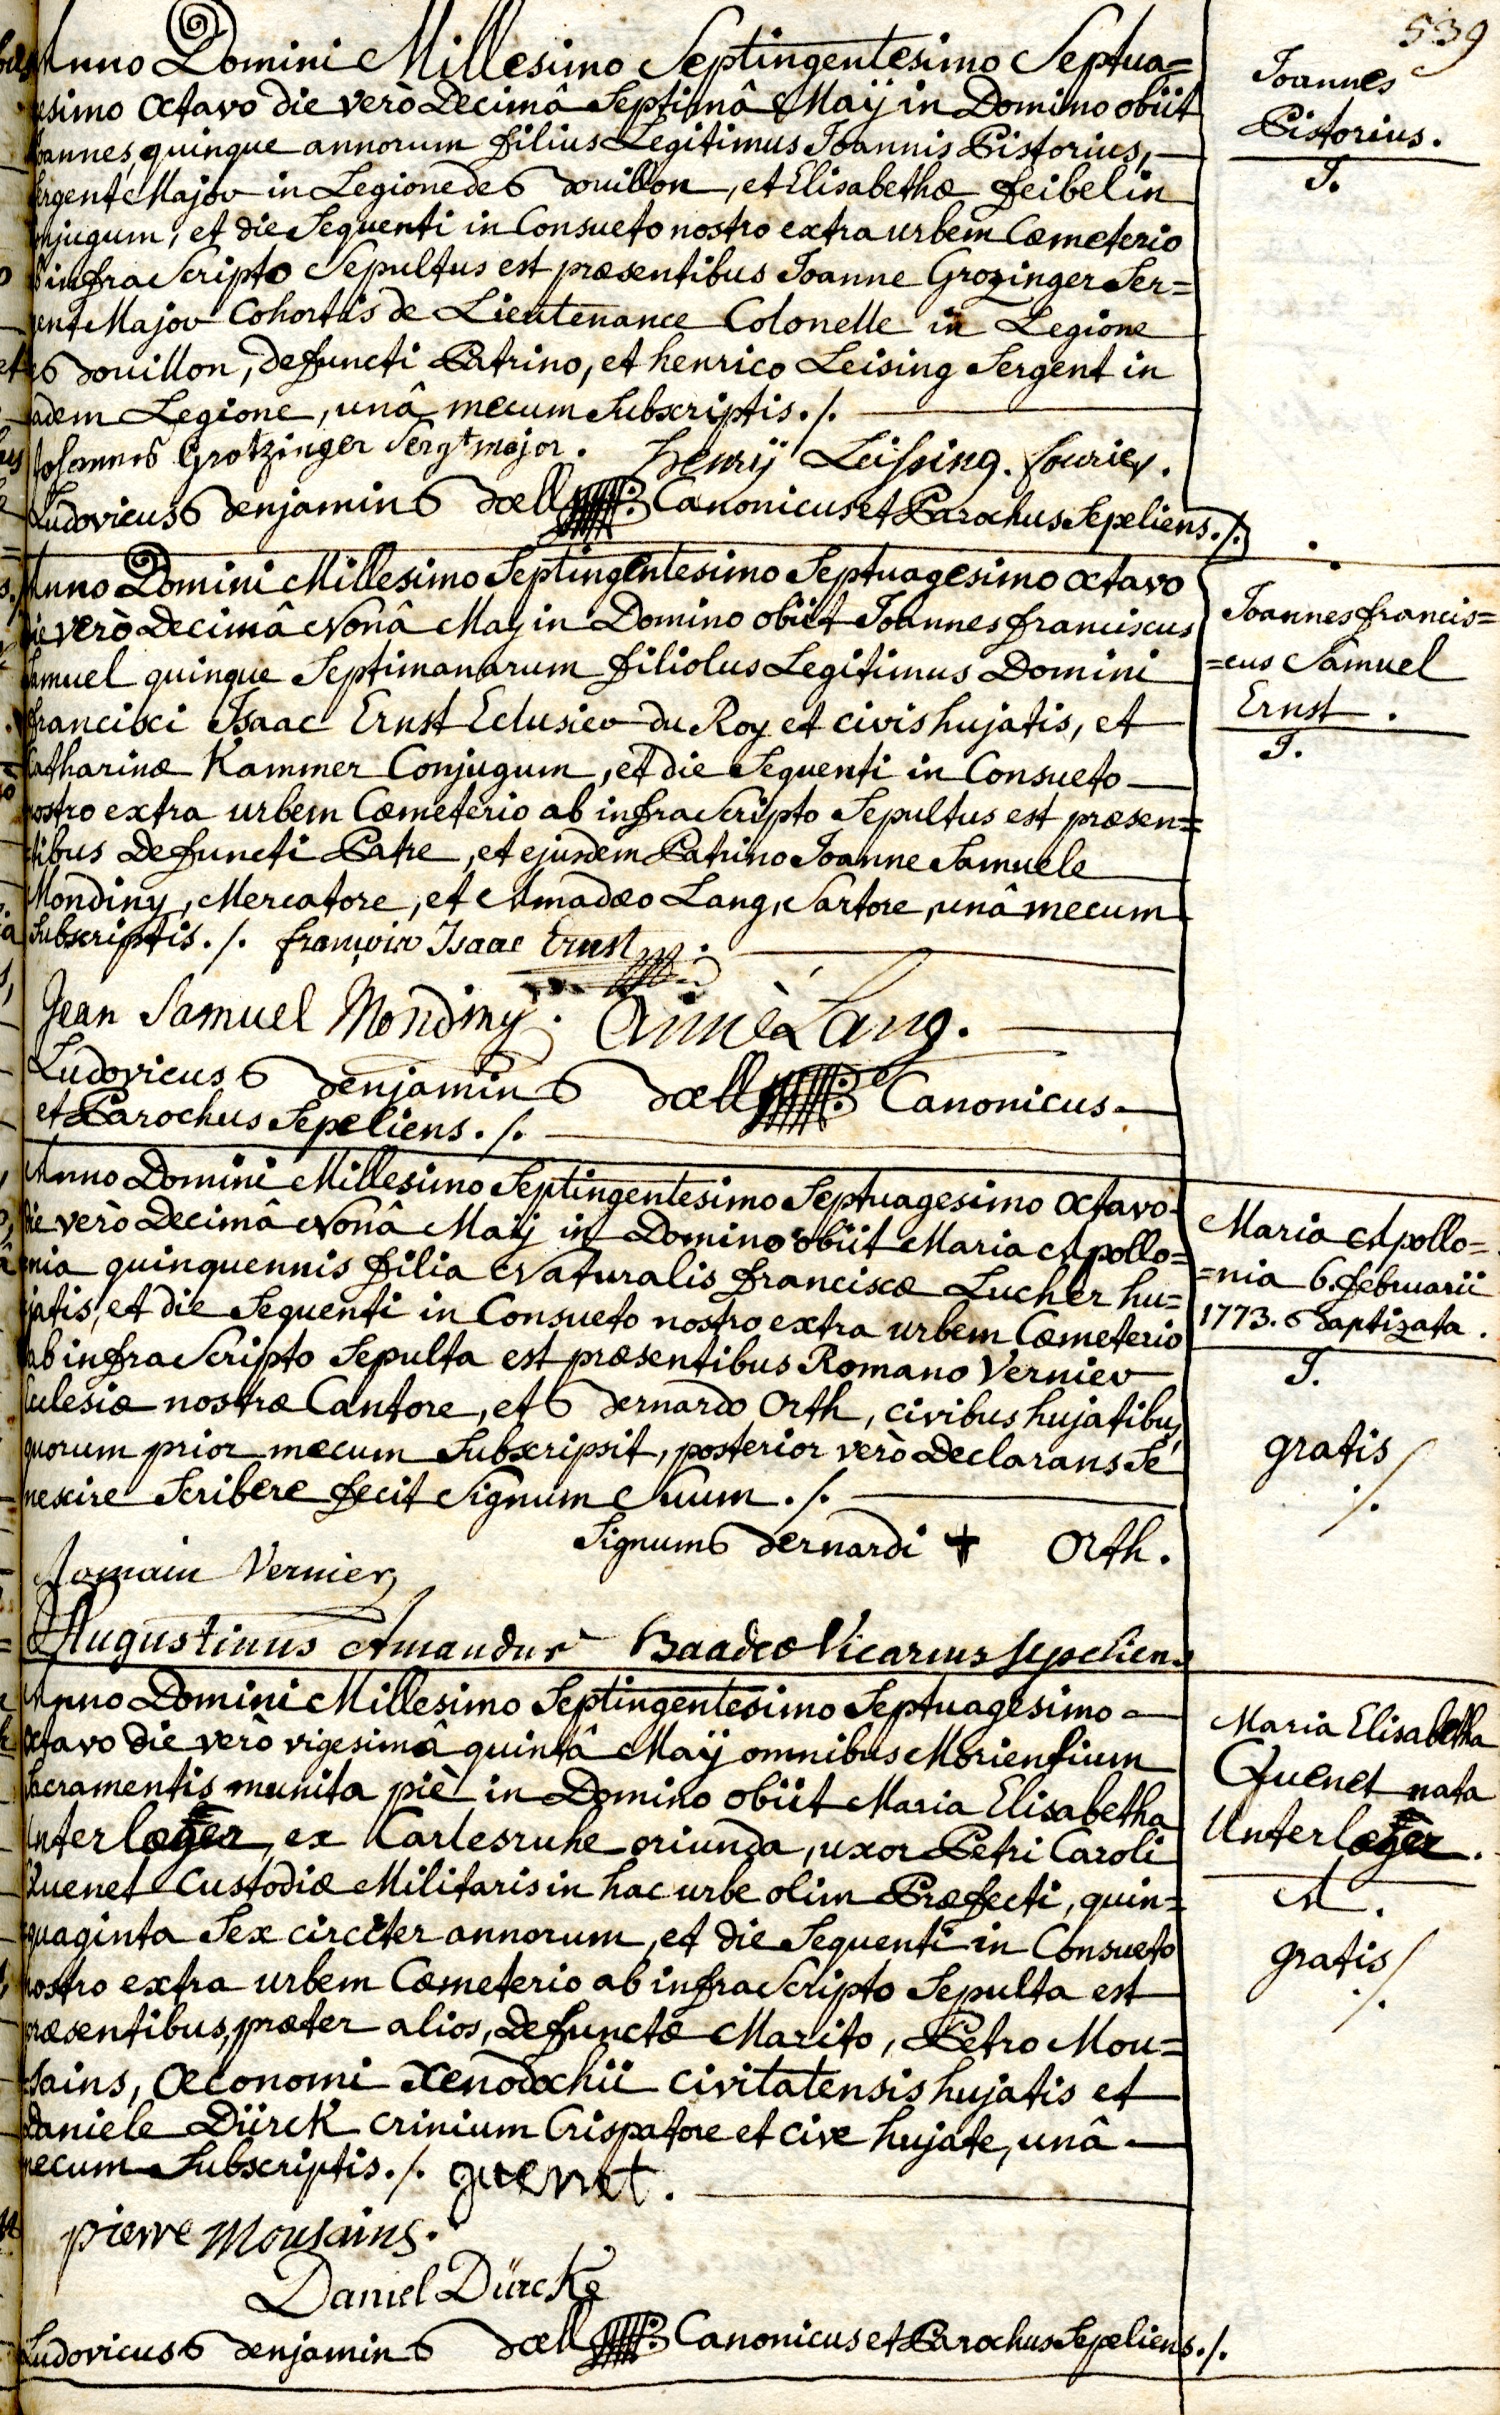 539
Anno Domini Millesimo Septingentesimo Septua=
esimo octavo die verò Decimâ Septimâ Maÿ in Domino obiit
oannes, quinque annorum filius Legitimus Joannis Pistorius,
ergent Major in Legione de Bouillon, et Elisabethæ feibelin
onjugum, et die Sequenti in Consueto nostro extra urbem Cœmeterio
infra Scripto Sepultus est præsentibus Joanne Grozinger Ser=
gent Major Cohortis de Lieutenance Colonelle in Legione
Bouillon, defuncti Patrino, et henrico Leising Sergent in
adem Legione, unâ mecum Subscriptis ./.
Johannes Grotzinger Sergt major. Henrÿ Leissing. fourier.
Ludovicus Benjamin Bœll Canonicus et Parochus Sepeliens ./.
Joannes
Pistorius.
J.
Anno Domini Millesimo Septingentesimo Septuagesimo octavo
die verò Decimâ Nonâ May in Domino obiit Joannes franciscus
Samuel quinque Septimanarum filiolus Legitimus Domini
francisci Isaac Ernst Eclusier du Roy et civis hujatis, et
Catharinæ Kammer Conjugum, et die Sequenti in Consueto
nostro extra urbem Cœmeterio ab infra Scripto Sepultus est præsen=
tibus defuncti Patre, et ejusdem Patrino Joanne Samuele
Mondiny, Mercatore, et Amadæo Lang, Sartore, unâ mecum
Subscriptis ./. françoix Isaac Ernst
Jean Samuel Mondinÿ. Aimè Lang.
Ludovicus Benjamin Bœll Canonicus
et Parochus Sepeliens ./.
Joannes francis=
=cus Samuel
Ernst.
J.
Anno Domini Millesimo Septingentesimo Septuagesimo octavo
die verò Decimâ Nonâ Maÿ in Domino obiit Maria Apollo=
nia quinquennis filia Naturalis franciscæ Lucher hu=
jatis, et die Sequenti in Consueto nostro extra urbem Cœmeterio
ab infra Scripto Sepulta est præsentibus Romano Vernier
Eclesiæ nostræ Cantore, et Bernardo Orth, civibus hujatibus,
quorum prior mecum Subscripsit, posterior verò Declarans Se
nescire Scribere fecit Signum Suum ./.
Signum Bernardi + Orth.
Romain Vernier
Augustinus Amandus Baadeo Vicarius sepeliens
Maria Apollo=
=nia 6. februarii
1773. Baptizata.
J.
gratis
./.
Anno Domini Millesimo Septingentesimo Septuagesimo
octavo die verò vigesimâ quintâ Maÿ omnibus Morientium
Sacramentis munita piè in Domino obiit Maria Elisabetha
Unterlæger, ex Carlesruhe oriunda, uxor Petri Caroli
Quenet Custodiæ Militaris in hac urbe olim Præfecti, quin=
quaginta Sex circiter annorum, et die Sequenti in Consueto
nostro extra urbem Cœmeterio ab infra Scripto Sepulta est
præsentibus, præter alios, defunctæ Marito, Petro Mou=
sains, Œconomi Xenodochii civitatensis hujatis et
Daniele Dürck crinium Crispatore et cive hujate, unâ
mecum Subscriptis ./. quenet.
pierre Mousains.
Daniel Dürcke
Ludovicus Benjamin Bœll Canonicus et Parochus Sepeliens ./.
Maria Elisabetha
Quenet nata
Unterlæger.
A.
gratis
./.